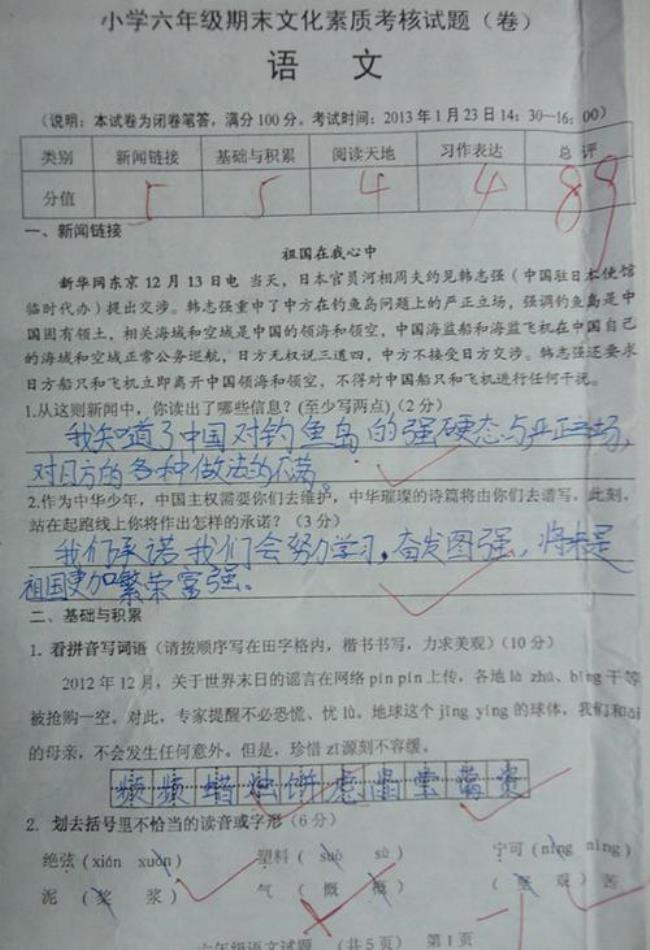 小学六年级期末文化素质考核试题（卷）
语 文
（说明：本试卷为闭卷笔答，满分100分。考试时间：2013年1月23日14：30—16：00）
类别 新闻链接 基础与积累 阅读天地 习作表达 总 评
分值 5 5 4 4 89
一、新闻链接
祖国在我心中
新华网东京12月13日电 当天，日本官员河相周夫约见韩志强（中国驻日本使馆
临时代办）提出交涉。韩志强重申了中方在钓鱼岛问题上的严正立场，强调钓鱼岛是中
国固有领土，相关海域和空域是中国的领海和领空，中国海监船和海监飞机在中国自己
的海域和空域正常公务巡航，日方无权说三道四，中方不接受日方交涉。韩志强还要求
日方船只和飞机立即离开中国领海和领空，不得对中国船只和飞机进行任何干扰。
1.从这则新闻中，你读出了哪些信息？(至少写两点)（2分）
我知道了中国对钓鱼岛的强硬态与严正立场，
对日方的各种做法的不满。
2.作为中华少年，中国主权需要你们去维护，中华璀璨的诗篇将由你们去谱写。此刻，
站在起跑线上你将作出怎样的承诺？（3分）
我们承诺我们会努力学习，奋发图强，将来是
祖国更加繁荣富强。
二、基础与积累
1. 看拼音写词语（请按顺序写在田字格内，楷书书写，力求美观）（10分）
2012年12月，关于世界末日的谣言在网络pín pín上传，各地là zhú、bǐng干等
被抢购一空。对此，专家提醒不必恐慌、忧lǜ。地球这个jīng yíng的球体，我们和ǎi
的母亲，不会发生任何意外。但是，珍惜zī源刻不容缓。
频 频 蜡 烛 饼 虑 晶 莹 蔼 资
2. 划去括号里不恰当的读音或字形（6分）
绝弦（xián xuán） 塑料（suò sù） 宁可（níng nìng）
泥（桨 浆） 气（慨 概） （ 艰）苦
六年级语文试题 （共5页） 第1页